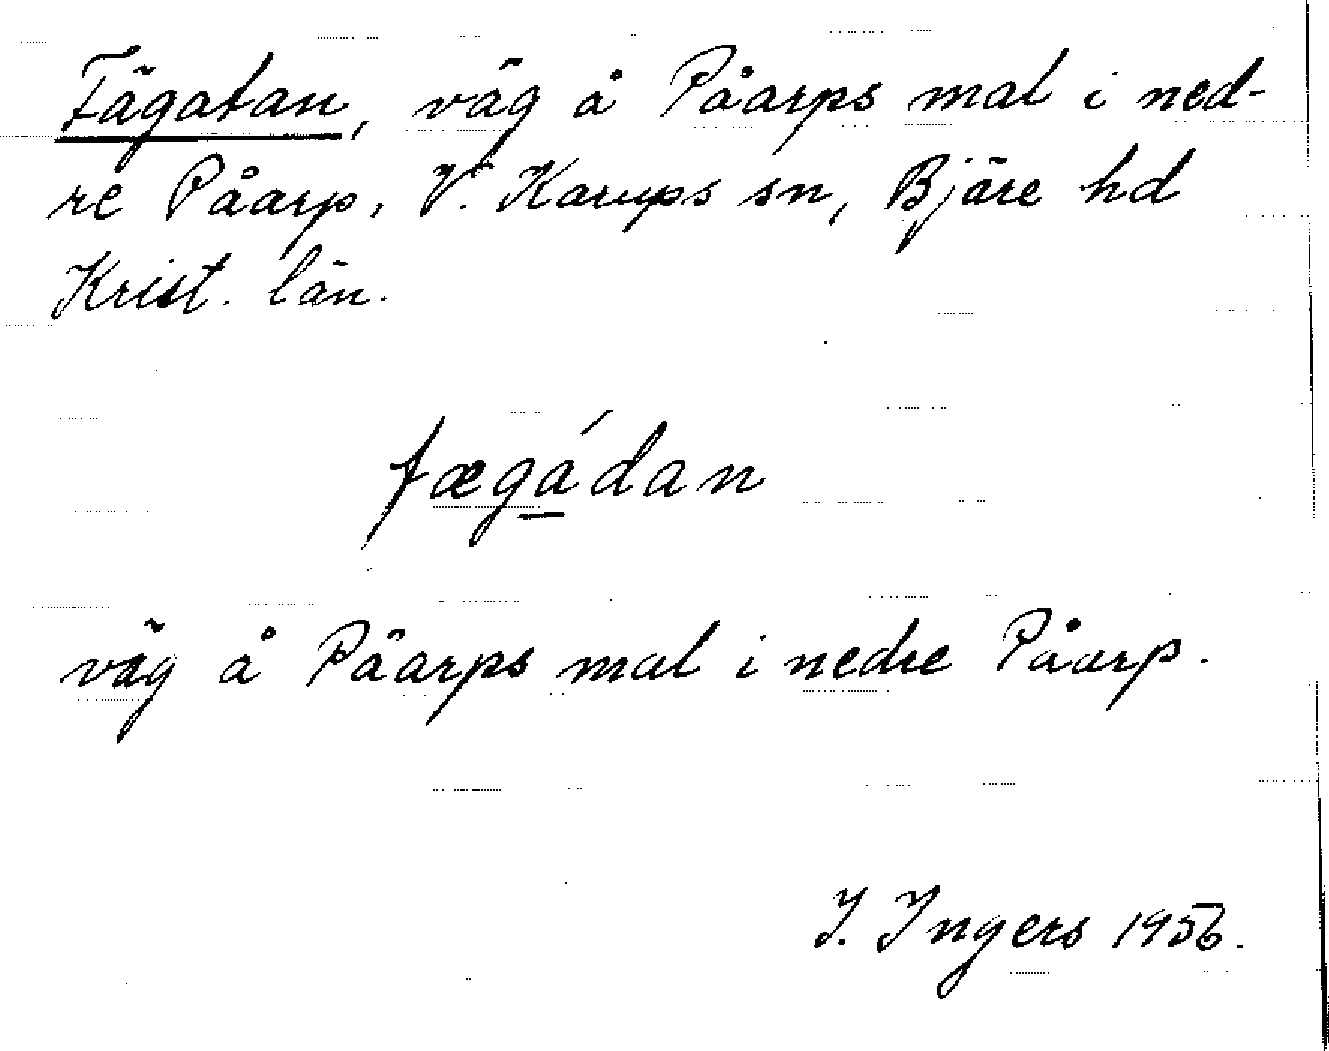 Fägatan, väg å Påarps mal i ned-
re Påarp, V. Karups sn, Bjäre hd
Krist. län.
fægádan
väg å Påarps mal i nedre Påarp.
I. Ingers 1956.